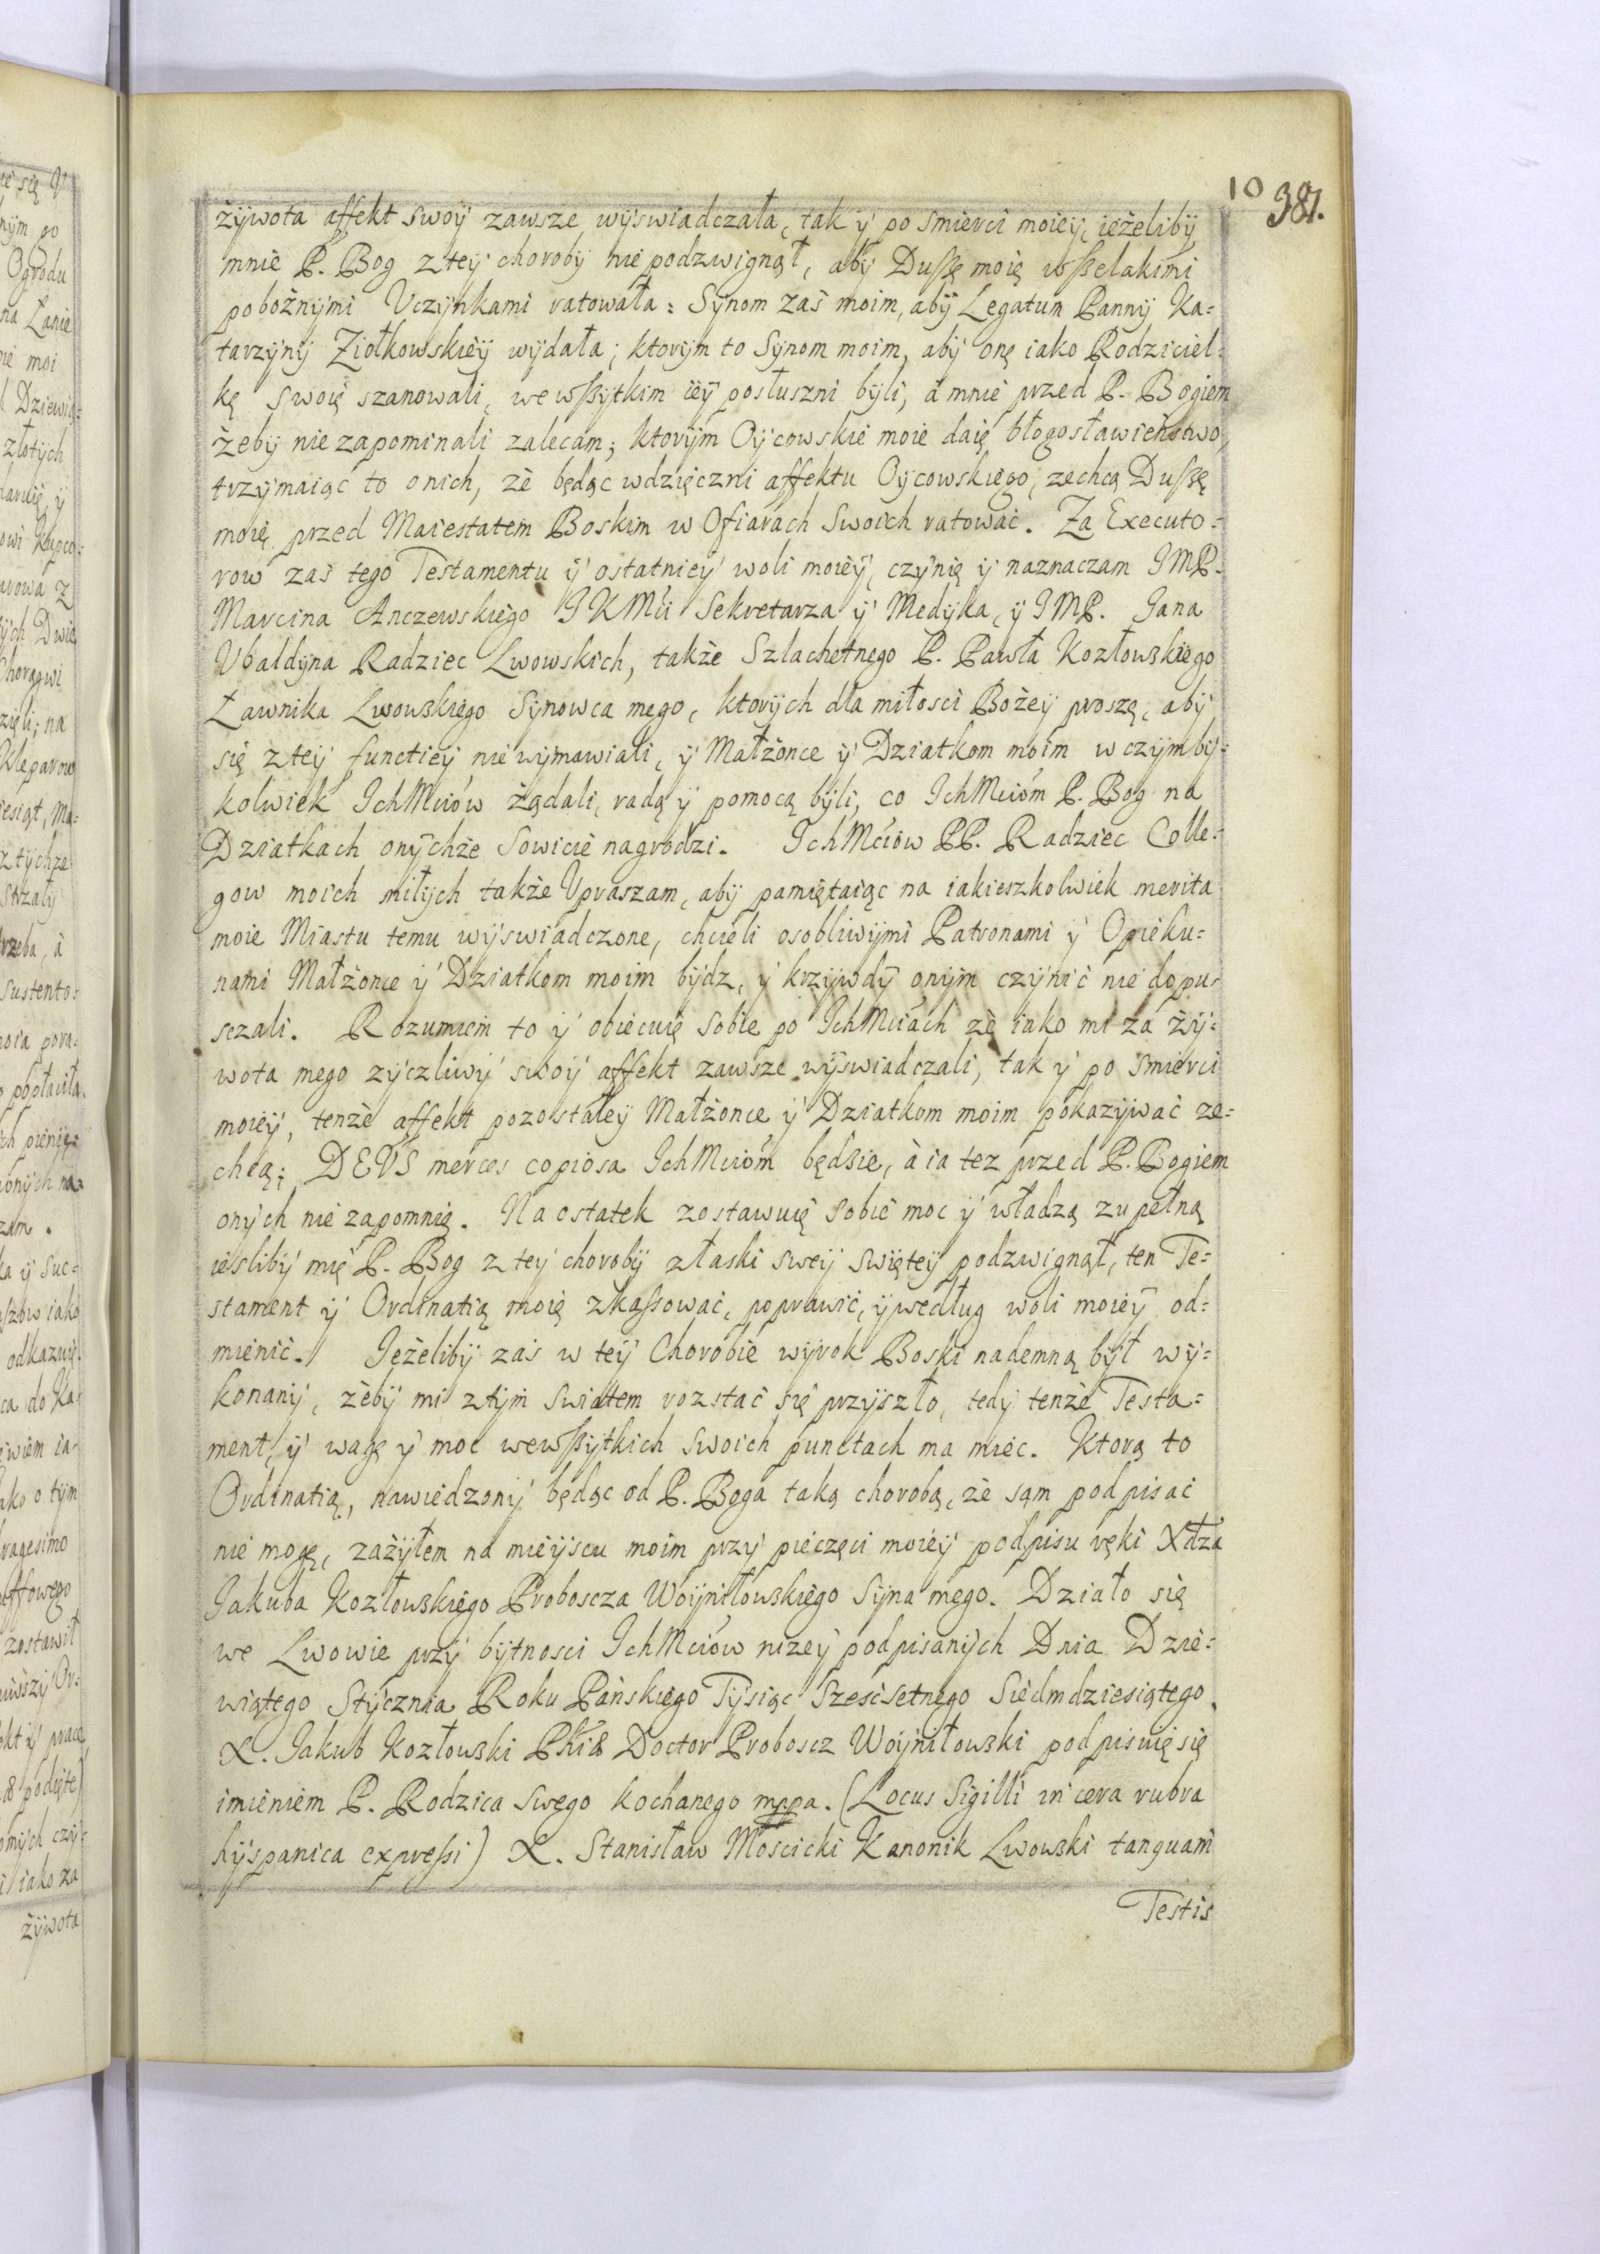 10 381.
żywota affekt swoy zawsze wyswiadczała, tak y po smierci moiey, ieżeliby
mnie P. Bog z tey choroby nie podzwignął, aby Dussę moię wszelakimi
pobożnymi Vczynkami ratowała: Synom zaś moim, aby Legatum Panny Ka=
tarzyny Ziołkowskiey wydała; ktorym to Synom moim, aby onę iako Rodziciel=
kę swoię szanowali, we wszytkim iey posłuszni byli, á mnie przed P. Bogiem
żeby nie zapominali zalecam; ktorym Oycowskie moie daię błogosławieństwo,
trzymaiąc to o nich, że będąc wdzięczni affektu Oycowskiego, zechcą Dussę
moię przed Maiestatem Boskim w Ofiarach Swoich ratować. Za Executo=
row zaś tego Testamentu y ostatniey woli moiey, czynię y naznaczam IMP.
Marcina Anczewskiego IKMci Sekretarza y Medyka, y IMP. Jana
Vbaldyna Radziec Lwowskich, także Szlachetnego P. Pawła Kozłowskiego
Ławnika Lwowskiego Synowca mego, ktorych dla miłosci Bożey proszę, aby
się z tey functiey nie wymawiali, y Małżonce y Dziatkom moim w czymby=
kolwiek IchMciów żądali, radą y pomocą byli, co IchMcióm P. Bog na
Dziatkach onychże Sowicie nagrodzi. IchMciów PP. Radziec Colle=
gow moich miłych także Vpraszam, aby pamiętaiąc na iakieszkolwiek merita
moie Miastu temu wyswiadczone, chcieli osobliwymi Patronami y Opieku=
nami Małżonce y Dziatkom moim bydz, y krzywdy onym czynić nie dopu=
sczali. Rozumiem to y obiecuię sobie po IchMciach że iako mi za ży=
wota mego zyczliwy swoy affekt zawsze wyswiadczali, tak y po smierci
moiey, tenże affekt pozostałey Małżonce y Dziatkom moim pokazywać ze=
chcą; DEVS merces copiosa IchMcióm będzie, à ia tez przed P. Bogiem
onych nie zapomnię. Na ostatek zostawuię sobie moc y władzą zupełną
iesliby mię P. Bog z tey choroby z łaski swey swiętey podzwignął, ten Te=
stament y Ordinatią moię zkassować, poprawić, y według woli moiey od=
mienić. Jeżeliby zaś w tey Chorobie wyrok Boski nademną był wy=
konany, żeby mi z tym swiatem rozstać się przyszło, tedy tenże Testa=
ment, y wagę y moc we wszytkich swoich punctach ma mieć. Ktorą to
Ordinatią, nawiedzony będąc od P. Boga taką chorobą, że sam podpisać
nie mogę, zażyłem na mieyscu moim przy pieczęci moiey podpisu ręki Xdza
Jakuba Kozłowskiego Proboscza Woyniłowskiego Syna mego. Działo się
we Lwowie przy bytnosci IchMciów niżey podpisanych Dnia Dzie=
wiątego Stycznia Roku Pańskiego Tysiąc Sześćsetnego Siedmdziesiątego.
X. Jakub Kozłowski Phiae Doctor Proboscz Woyniłowski podpisuię się
imieniem P. Rodzica Swego kochanego mppa. (Locus Sigilli in cera rubra
hyspanica expressi) X. Stanisław Moscicki Kanonik Lwowski tanquam
Testis